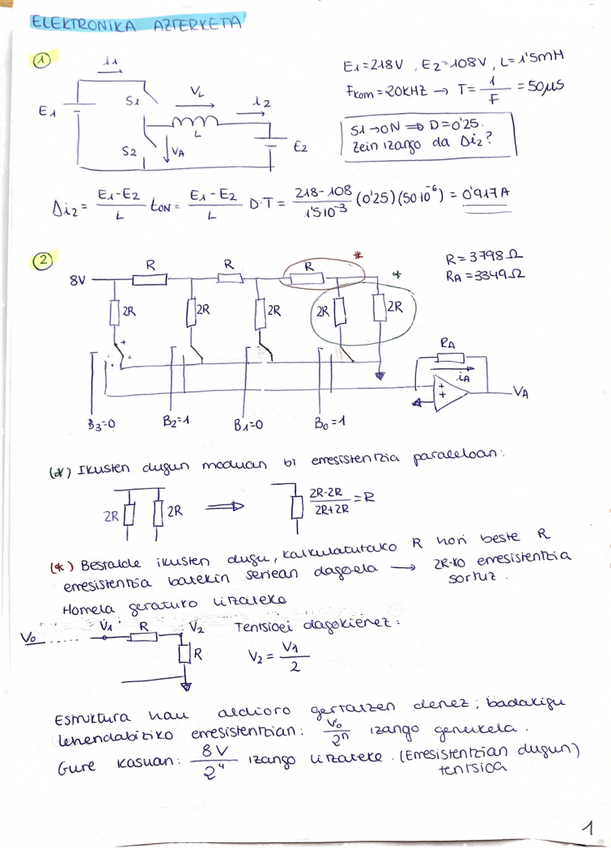 ELEKTRONIKA AZTERKETA
1
i1
E1
S1
VL
L
i2
S2
VA
E2
E1=218V, E2=108V, L=1'5mH
Fkom=20KHZ → T= 1/F = 50µs
S1→ON ⇒ D=0'25.
Zein izango da Δi2?
Δi2= E1-E2/L ton= E1-E2/L D·T= 218-108/1'510⁻³ (0'25)(50·10⁻⁶)= 0'917A
2
R=3798Ω
RA=3349Ω
8V
R
R
R
*
*
2R
2R
2R
2R
2R
RA
iA
VA
B3=0
B2=1
B1=0
B0=1
(*) Ikusten dugun moduan bi erresistentzia paraleloan:
2R
2R
⇒
2R·2R/2R+2R =R
(*) Bestalde ikusten dugu, kalkulatutako R hori beste R
erresistentzia batekin seriean dagoela → 2R-ko erresistentzia
sortuz.
Homela geratuko litzateke
Vo
V1
R
V2
R
Tentsioei dagokienez:
V2= V1/2
Estruktura hau aldioro gertatzen denez; badakigu
lehendabiziko erresistentzian: Vo/2ⁿ izango genukela.
Gure kasuan: 8V/2⁴ izango litzateke. (Erresistentzian dugun)
tentsioa
1